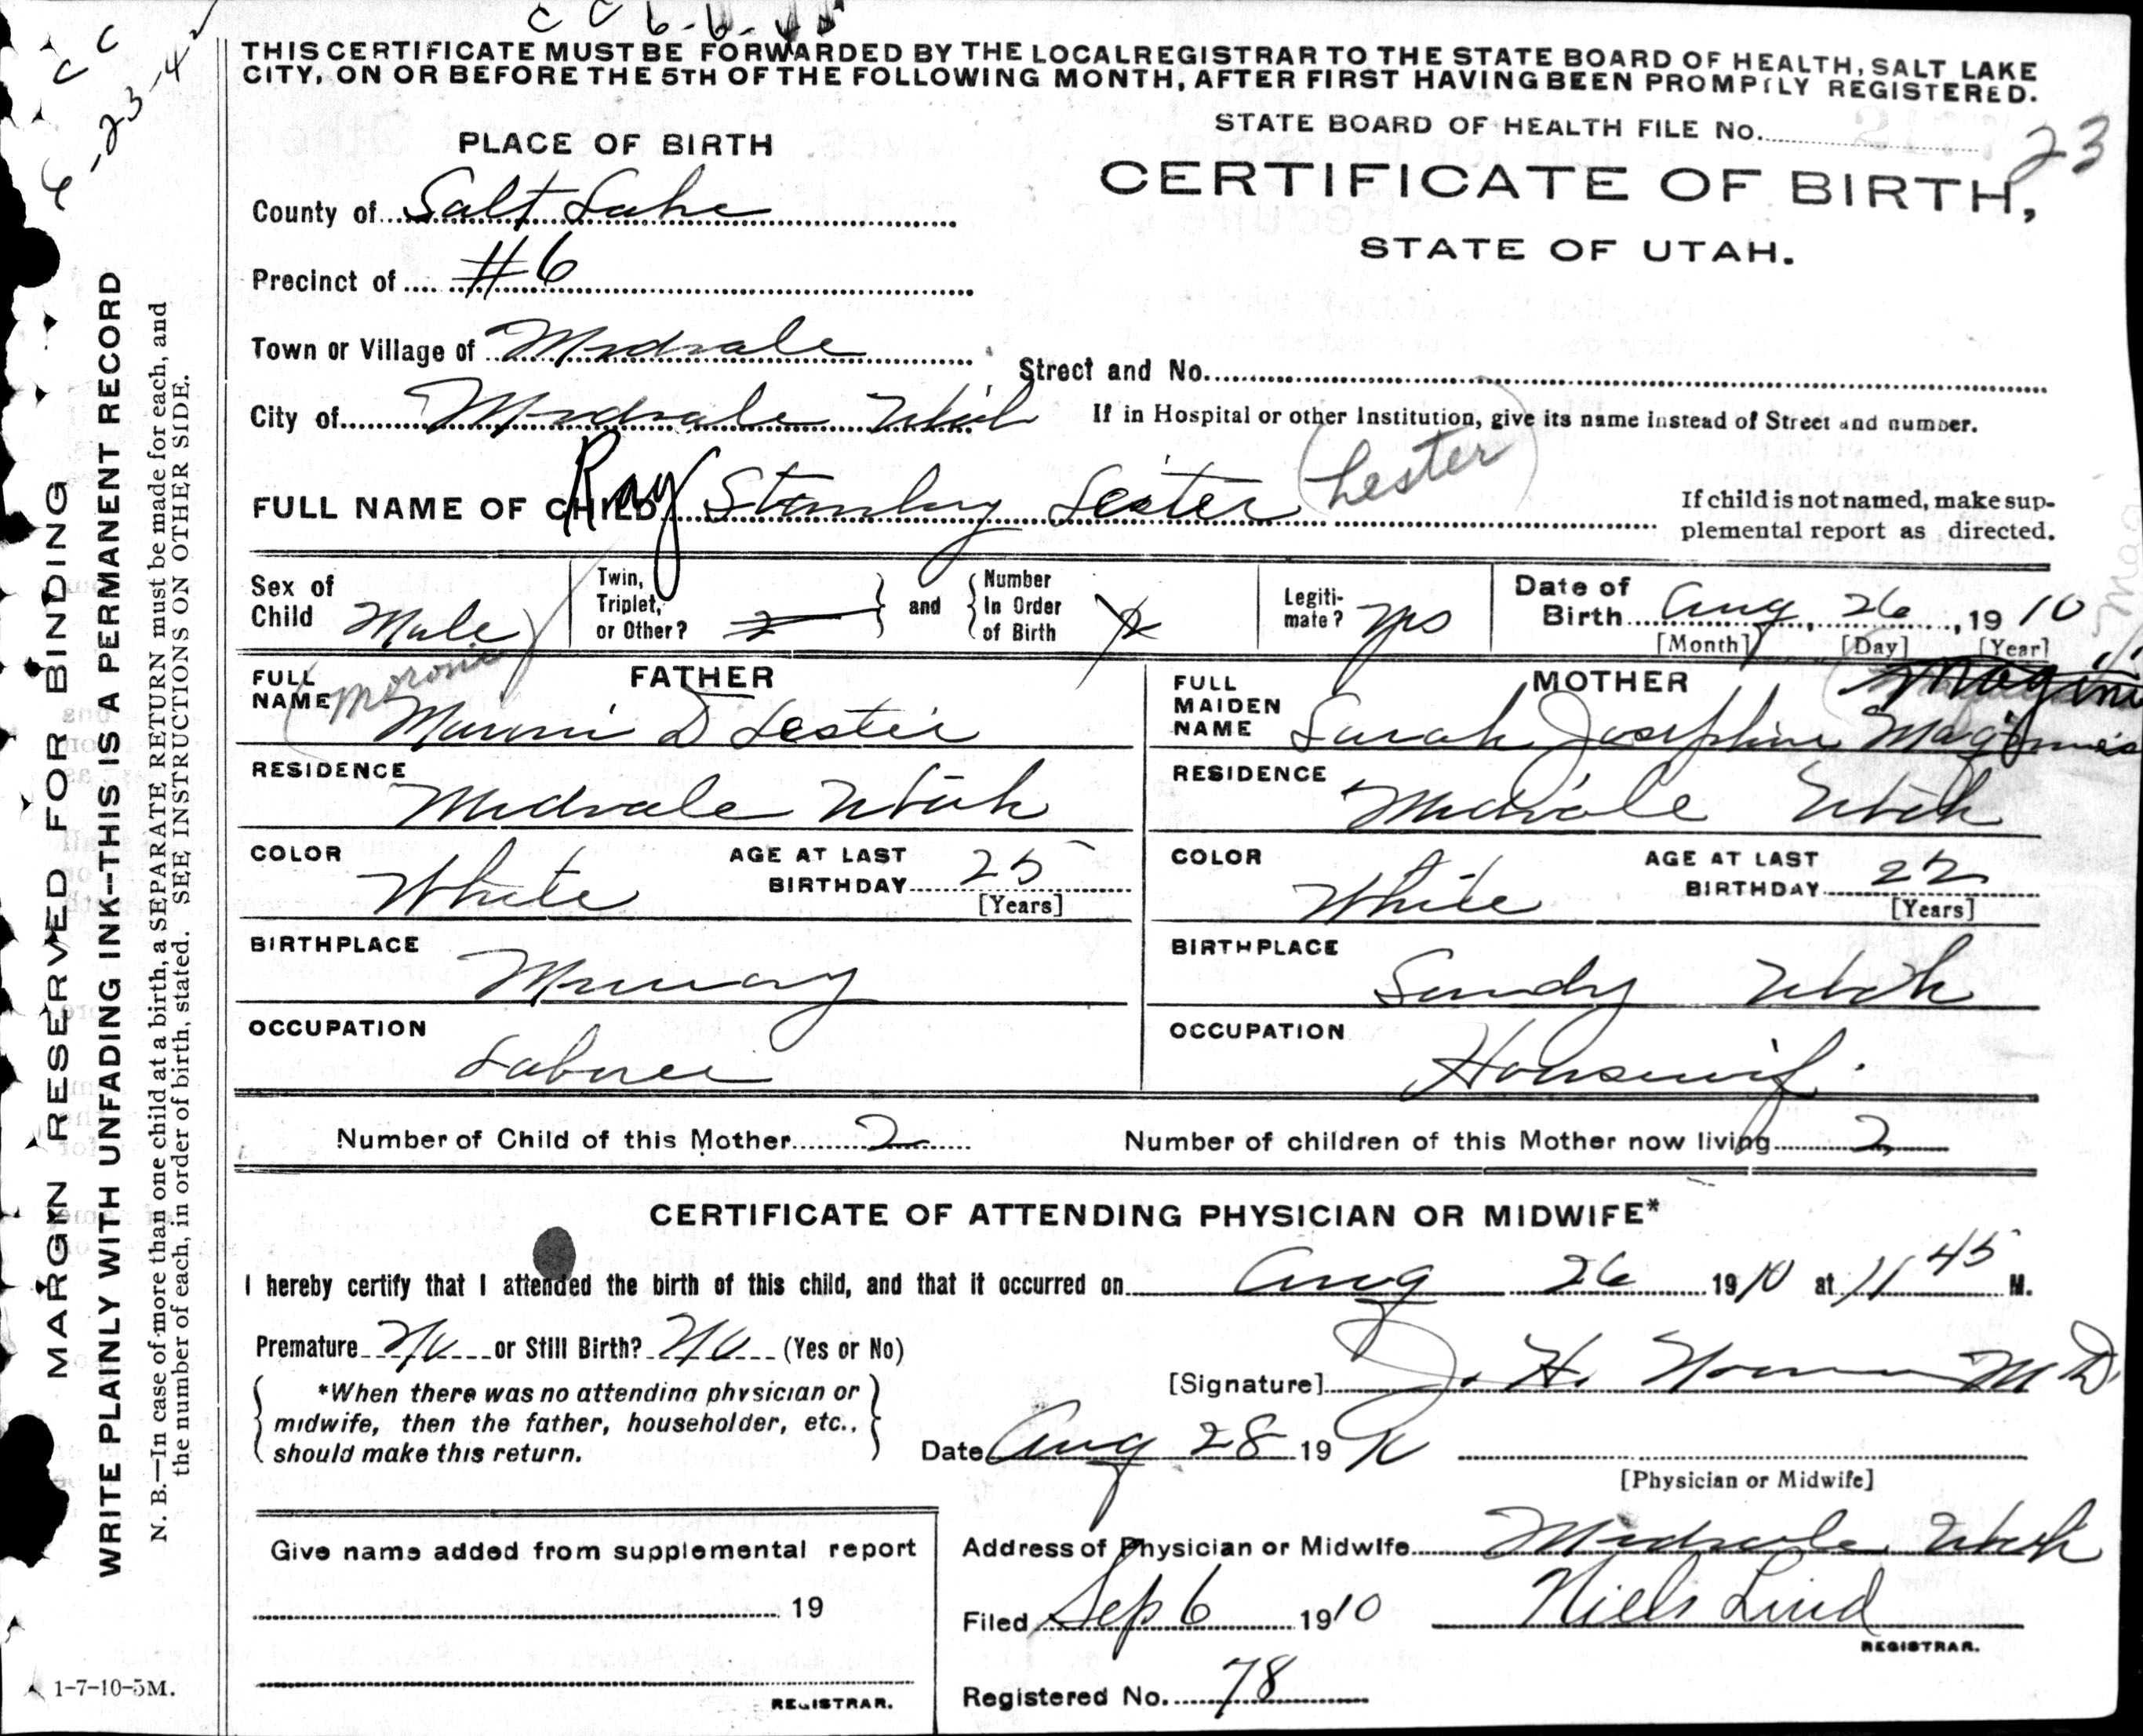 C C 6-6-45
C C
6-23-42
THIS CERTIFICATE MUST BE FORWARDED BY THE LOCAL REGISTRAR TO THE STATE BOARD OF HEALTH, SALT LAKE
CITY, ON OR BEFORE THE 5TH OF THE FOLLOWING MONTH, AFTER FIRST HAVING BEEN PROMPTLY REGISTERED.
STATE BOARD OF HEALTH FILE No. 23
PLACE OF BIRTH
CERTIFICATE OF BIRTH,
STATE OF UTAH.
County of Salt Lake
Precinct of #6
Town or Village of Midvale
Street and No.
City of Midvale Utah
If in Hospital or other Institution, give its name instead of Street and number.
FULL NAME OF CHILD Ray Stanley Lester (Lester)
If child is not named, make sup-
plemental report as directed.
Sex of Child Male
Twin, Triplet, or Other? 2 and Number In Order of Birth 2
Legiti-mate? yes
Date of Birth Aug 26, 1910
[Month] [Day] [Year]
FATHER
FULL NAME (Moronie) Muroni D Lester
MOTHER
FULL MAIDEN NAME Sarah Josephine Maginnes
RESIDENCE Midvale Utah
RESIDENCE Midvale Utah
COLOR White AGE AT LAST BIRTHDAY 25 [Years]
COLOR White AGE AT LAST BIRTHDAY 22 [Years]
BIRTHPLACE Murray
BIRTHPLACE Sandy Utah
OCCUPATION Laborer
OCCUPATION Housewife
Number of Child of this Mother 2
Number of children of this Mother now living 2
CERTIFICATE OF ATTENDING PHYSICIAN OR MIDWIFE*
I hereby certify that I attended the birth of this child, and that it occurred on Aug 26 1910 at 11 45 M.
Premature No or Still Birth? No (Yes or No)
*When there was no attending physician or
midwife, then the father, householder, etc.,
should make this return.
[Signature] J. H. M D
Date Aug 28 1910
[Physician or Midwife]
Give name added from supplemental report
19
REGISTRAR.
Address of Physician or Midwife Midvale Utah
Filed Sep 6 1910 Niels Lind
REGISTRAR.
Registered No. 78
MARGIN RESERVED FOR BINDING
WRITE PLAINLY WITH UNFADING INK--THIS IS A PERMANENT RECORD
N. B.—In case of more than one child at a birth, a SEPARATE RETURN must be made for each, and
the number of each, in order of birth, stated. SEE INSTRUCTIONS ON OTHER SIDE.
1-7-10-5M.